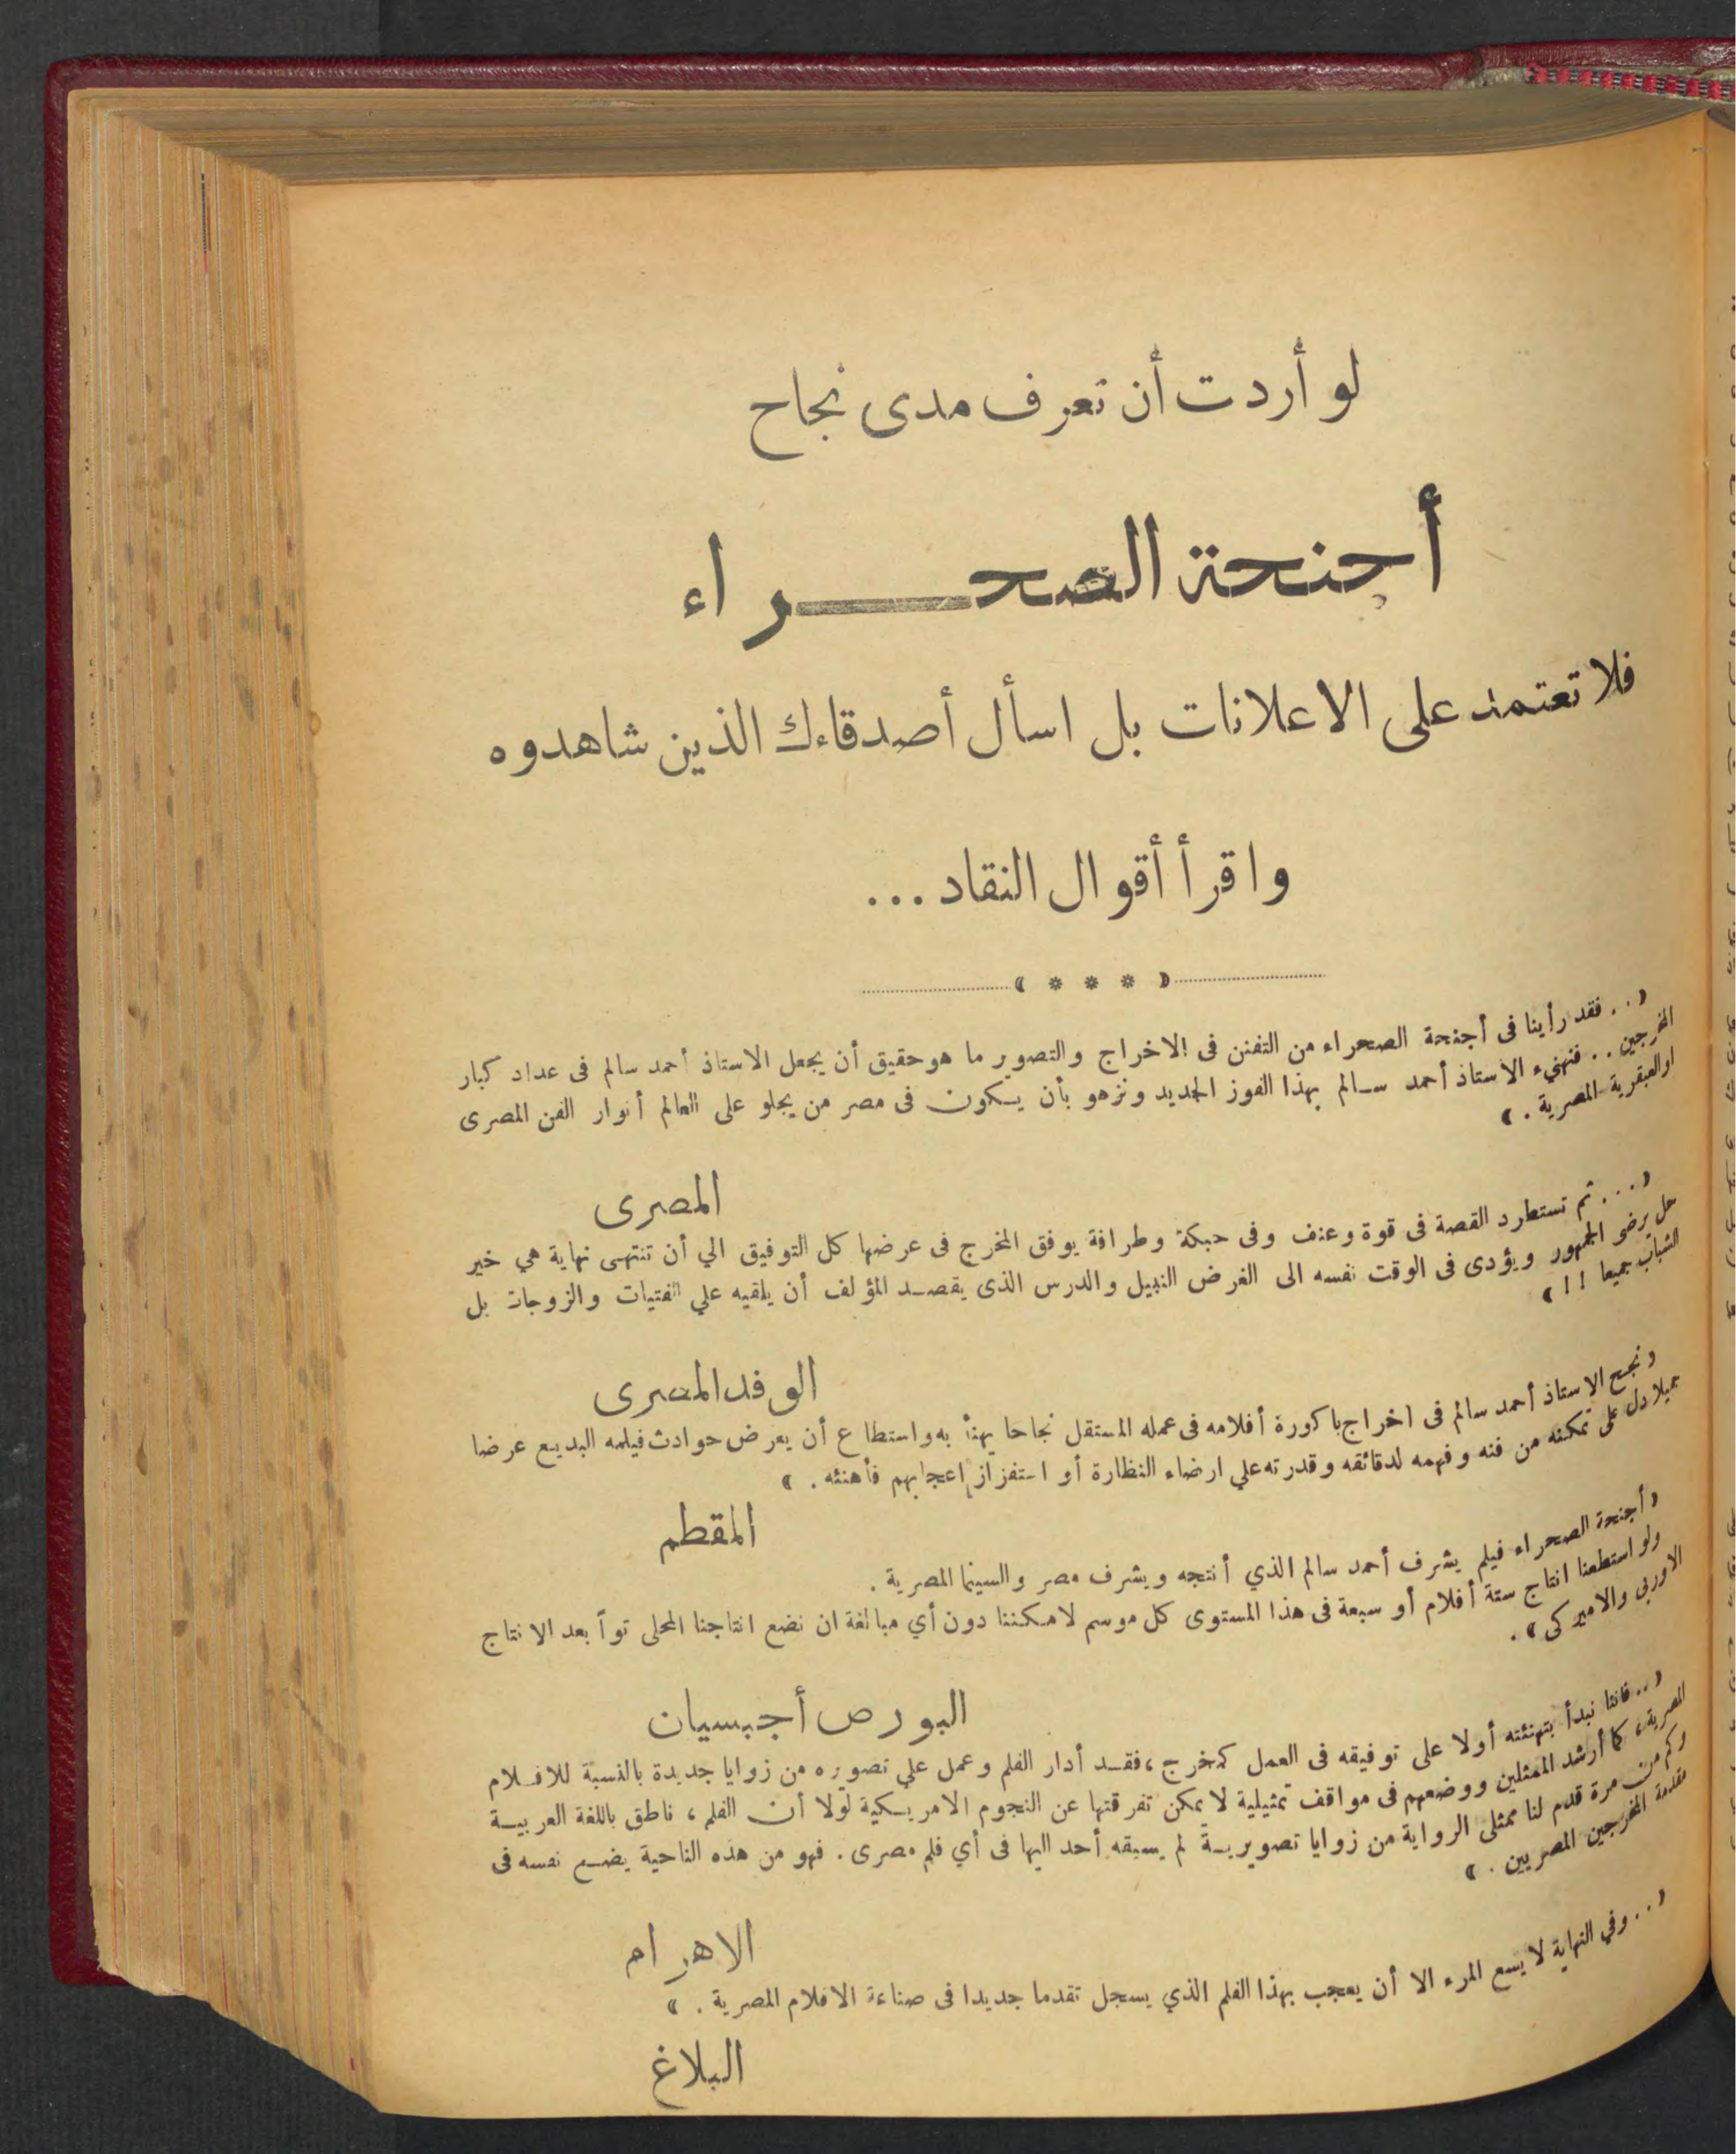 لو أردت أن تعرف مدى نجاح
أجنحة الصحراء
فلا تعتمد على الاعلانات بل اسأل أصدقاءك الذين شاهدوه
واقرأ أقوال النقاد ...
( * * * )
« .. فقد رأينا فى أجنحة الصحراء من التفنن فى الاخراج والتصوير ما هو حقيق أن يجعل الاستاذ أحمد سالم فى عداد كبار
المخرجين .. فنهنىء الاستاذ أحمد سالم بهذا الفوز الجديد ونزهو بأن يكون فى مصر من يجلو على العالم أنوار الفن المصرى
اوالعبقرية المصرية . »
المصرى
« ... ثم تستطرد القصة فى قوة وعنف وفى حبكة وطرافة يوفق المخرج فى عرضها كل التوفيق الي أن تنتهى نهاية هي خير
حل يرضى الجمهور ويؤدى فى الوقت نفسه الى الغرض النبيل والدرس الذى يقصد المؤلف أن يلقيه علي الفتيات والزوجات بل
الشباب جميعا !! »
الوفد المصرى
« نجح الاستاذ أحمد سالم فى اخراج باكورة أفلامه فى عمله المستقل نجاحا يهنأ به واستطاع أن يعرض حوادث فيلمه البديع عرضا
جميلا دل على تمكنه من فنه وفهمه لدقائقه وقدرته علي ارضاء النظارة أو استفزاز اعجابهم فأهنئه . »
المقطم
« أجنحة الصحراء فيلم يشرف أحمد سالم الذي أنتجه ويشرف مصر والسينما المصرية .
ولو استطعنا انتاج ستة أفلام أو سبعة فى هذا المستوى كل موسم لامكننا دون أي مبالغة ان نضع انتاجنا المحلى تواً بعد الانتاج
الاوربى والاميركى » .
البورص أجبسيان
« .. فاننا نبدأ بتهنئته أولا على توفيقه فى العمل كمخرج ، فقد أدار الفلم وعمل علي تصويره من زوايا جديدة بالنسبة للافلام
المصرية ، كما أرشد الممثلين ووضعهم فى مواقف تمثيلية لا يمكن تفرقتها عن النجوم الامريكية لولا أن الفلم ، ناطق باللغة العربية
وكم من مرة قدم لنا ممثلى الرواية من زوايا تصويرية لم يسبقه أحد اليها فى أي فلم مصرى . فهو من هذه الناحية يضع نفسه فى
مقدمة المخرجين المصريين . »
الاهرام
« ... وفي النهاية لا يسع المرء الا أن يعجب بهذا الفلم الذي يسجل تقدما جديدا فى صناعة الافلام المصرية . »
البلاغ